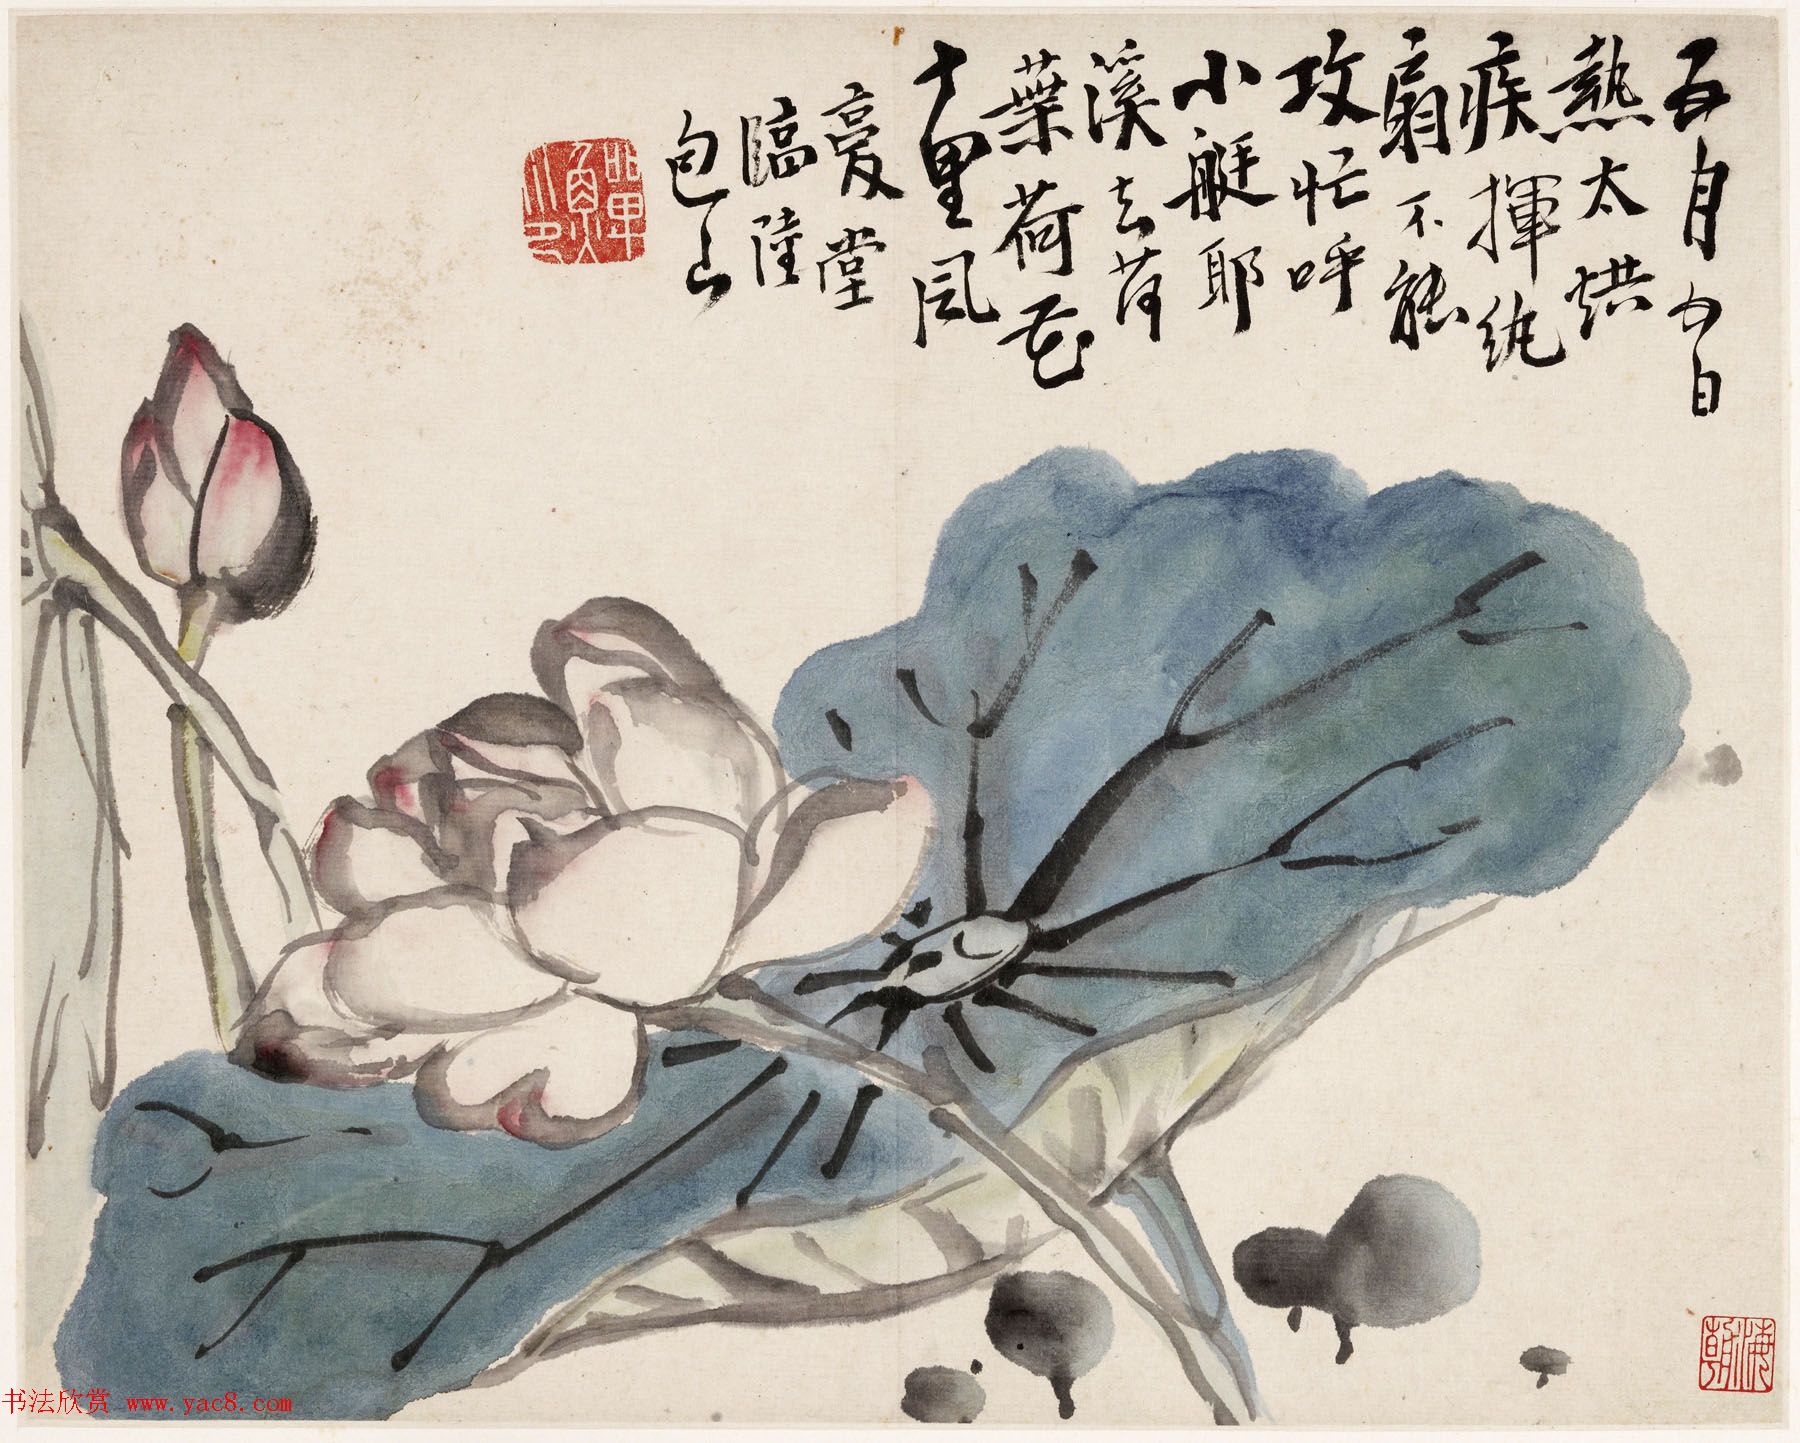 五月五日
熱太烘
疾揮紈
扇不能
攻忙呼
小艇耶
溪去荷
葉荷花
十里風
堂
臨陸
包山
书法欣赏 www.yac8.com